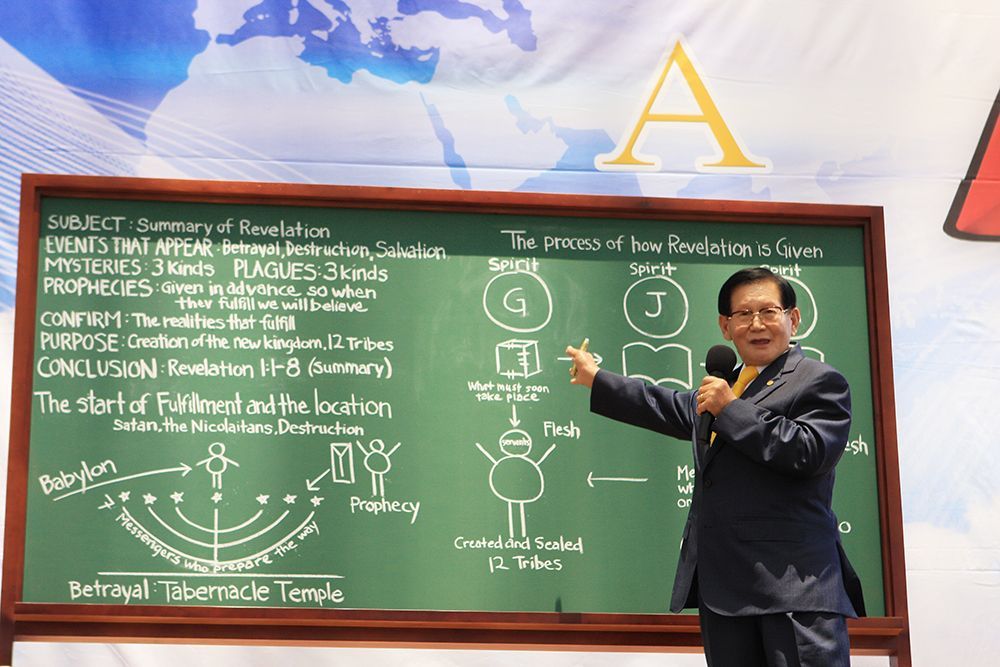 A
SUBJECT : Summary of Revelation
EVENTS THAT APPEAR : Betrayal, Destruction, Salvation
MYSTERIES : 3 Kinds PLAGUES : 3 Kinds
PROPHECIES : Given in advance so when
they fulfill we will believe
CONFIRM : The realities that fulfill
PURPOSE : Creation of the new kingdom, 12 Tribes
CONCLUSION : Revelation 1:1-8 (Summary)
The start of Fulfillment and the location
Satan, the Nicolaitans, Destruction
Babylon
Prophecy
Messengers who prepare the way
Betrayal : Tabernacle Temple
The process of how Revelation is Given
Spirit Spirit Spirit
G J
What must soon
take place
servants
Flesh
Created and Sealed
12 Tribes